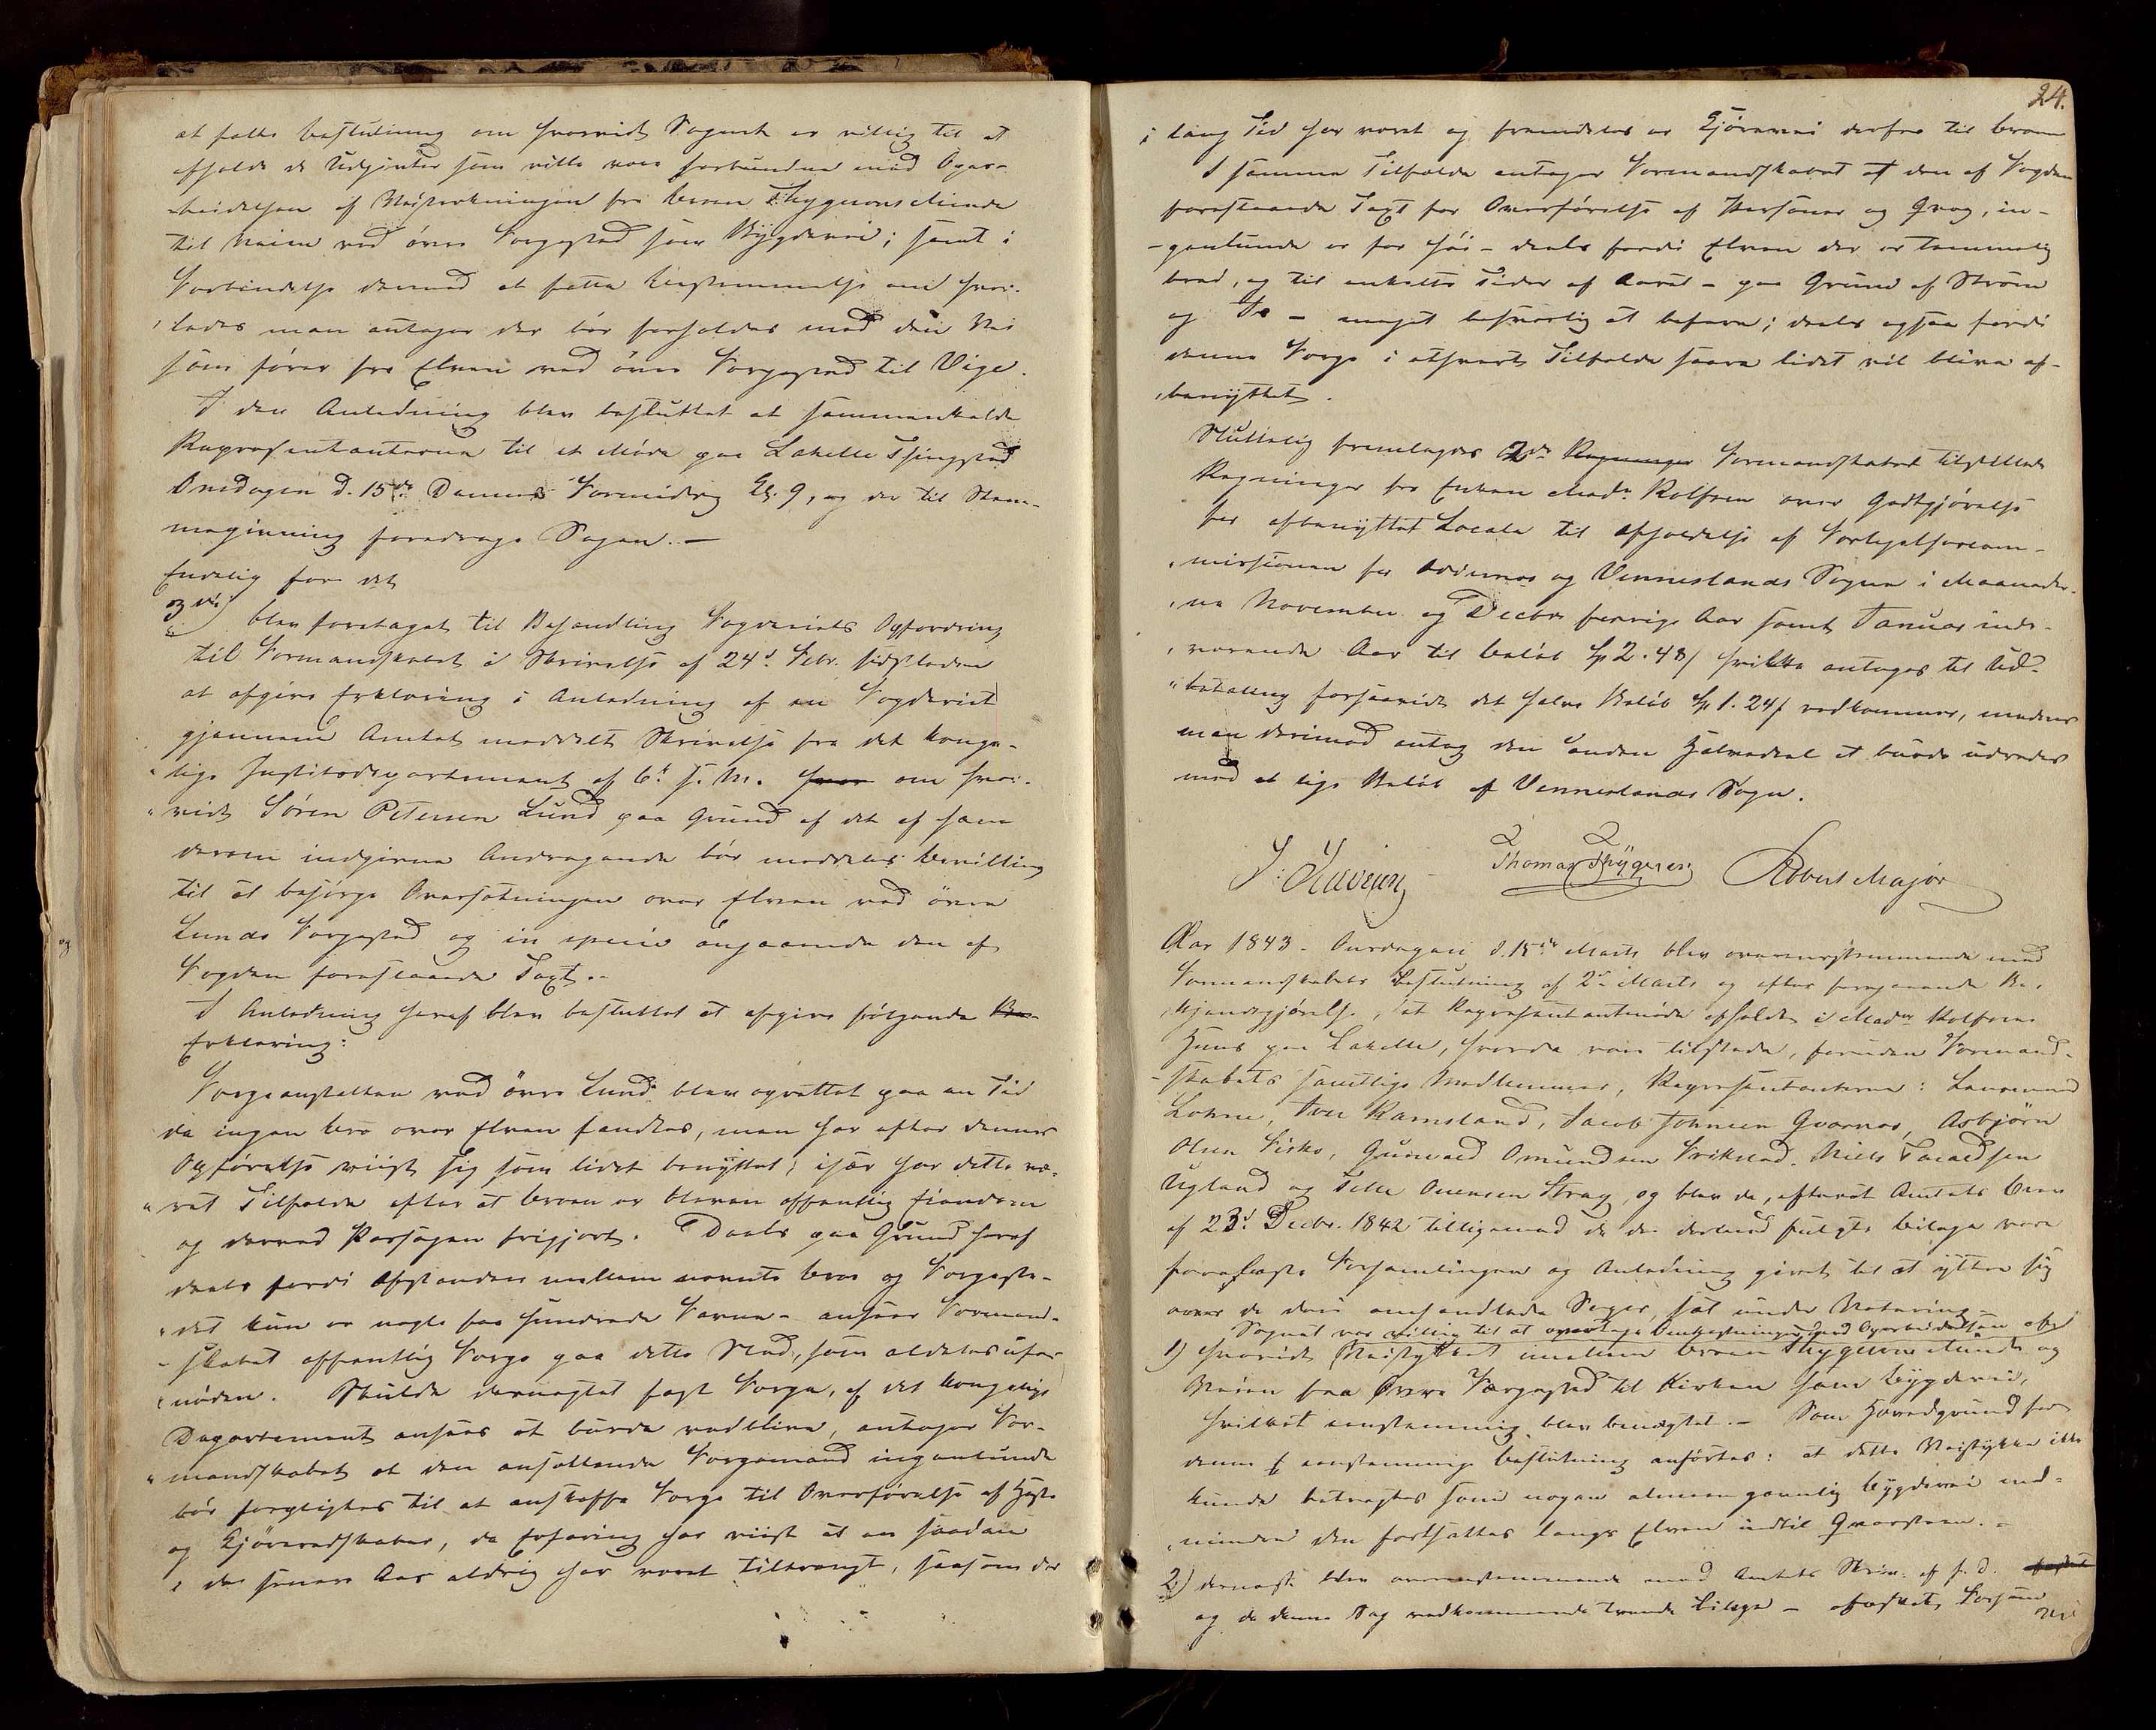 at fatte beslutning om hvorvidt Sognet er villig til at
afholde de Udgivter som ville være forbundne med Opar-
beidelsen af Veistrækningen fra broen Thygesons Minde
til Veien ved øvre Færgested som Bygdevei; samt i
Forbindelse dermed at fatte Bestemmelse om hvor-
ledes man antager der bør forholdes med den Vei
som fører fra Elven ved øvre Færgested til Vige.
I den Anledning blev besluttet at sammenkalde
Repræsentanterne til et Møde paa Lahelle Thingsted
Onsdagen d. 15de Dennes Formiddag Kl. 9, og der til Stem-
megivning foredrage Sagen. -
Endelig for det
3die) blev foretaget til Behandling Fogderiets Opfordring
til Formandskabet i Skrivelse af 24d. Febr. sidstleden
at afgive Erklæring i Anledning af en Fogderiet
gjennem Amtet meddelt Skrivelse fra det konge-
lige Justitsdepartement af 6t. f. M. hvor om hvor-
vidt Søren Petersen Lund paa Grund af det af ham
derom indgivne Andragende bør meddeles bevilling
til at besørge Oversætningen over Elven ved øvre
Lunds Færgested og in specie angaaende den af
Fogden foreslaaede Taxt. -
I Anledning heraf blev besluttet at afgive følgende Be-
Erklæring:
Færgeanstalten ved øvre Lund blev oprettet paa en Tid
da ingen bro over Elven fandtes, men har efter dennes
Opførelse viist sig som lidet benyttet; især har dette væ-
ret Tilfælde efter at broen er bleven offentlig Eiendom
og derved Passagen frigjort. Deels paa Grund heraf
deels fordi Afstanden mellem nævnte bro og Færgeste-
det kun er nogle faa hundrede Favne - ansees Formand-
skabet offentlig Færge paa dette Sted, som aldeles ufor-
nøden. Skulde dernæst fast Færge, af det kongelige
Departement ansees at burde vedblive, antager For-
mandskabet at den ansættende Færgemand ingenlunde
bør forpligtes til at anskaffe Færge til Overførelse af Heste
og Kjøreredskaber, da Erfaring har viist at en saadan
i de senere Aar aldrig har været tiltrængt, saasom der
24.
i lang Tid har været og fremdeles er Kjørevei derfra til broen
I samme Tilfælde antager Formandskabet at den af Fogden
foreslaaede Taxt for Overførelse af Personer og Qvæg, in-
genlunde er for høi - deels fordi Elven der er temmelig
bred, og til enkelte Tider af Aaret - paa Grund af Strøm
og Is - meget besværlig at befare; deels ogsaa fordi
denne Færge i ethvert Tilfælde saare lidet vil blive af-
benyttet.
Sluttelig fremlagdes 2de Regninger Formandskabet tilstillede
Regninger fra Enken Madm Rolfsen over Godtgjørelse
for afbenyttet Locale til Afholdelse af Forligelsescom-
missionen for Oddernes og Venneslands Sogne i Maaneder-
ne November og Decbr forrige Aar samt Januar inde-
værende Aar til beløb Sp 2. 48/ hvilke antoges til Ud-
betaling forsaavidt det halve Beløb Sp 1. 24/ vedkommer, medens
man derimod antog den anden Halvedeel at burde udredes
med et lige Beløb af Venneslands Sogn.
Thomas Thygesen Robert Major
Aar 1843. Onsdagen d. 15de Marts blev overeensstemmende med
Formandskabets Beslutning af 2den Marts og efter foregaaende Be-
kjendtgjørelse, et Repræsentantmøde afholdt i Madm Rolfsens
Huus paa Lahelle, hvorda vare tilstede, foruden Formand-
skabets samtlige Medlemmer, Repræsentanterne: Lensmand
Lohne, Iver Ramsland, Jacob Johnsen Qvarnes, Asbjørn
Olsen Fiske, Gunvald Omundsen Frikstad, Niels Taraldsen
Ugland og Telle Ouensen Stray, og blev da, efterat Amtets brev
af 23d. Decbr. 1842 tilligemed de det dermed fulgte bilage vare
forelæste Forsamlingen og Anledning givet til at yttre sig
over de deri omhandlede Sager, sat under Votering
Sognet var villig til at overtage Omkostningen med Oparbeidelsen af
1) hvorvidt Veistykket imellem broen Thygesons Minde og
Veien fra Øvre Færgested til Kirken som bygdevei,
hvilket eenstemmig blev benægtet. - Som Hovedgrund for
denne eenstemmige beslutning anførtes: at dette Veistykke ikke
kunde betragtes som nogen almeengavnlig bygdevei med-
mindre den fortsattes langs Elven indtil Qvarsteen. -
2) dernæst blev overeensstemmende med Amtets Skriv. af s. D.
og de denne Sag vedkommende trende bilage - Forsam